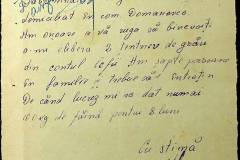 domiciliat în com. Domanevca.
Am onoare a vă ruga să binevoiți
a-mi elibera 2 centnere de grâu
din contul lefii Am șapte persoane
în familie și trebue să-i întrețin
De când lucrez mi s-a dat numai
60 kg de făină pentru 2 luni
Cu stimă